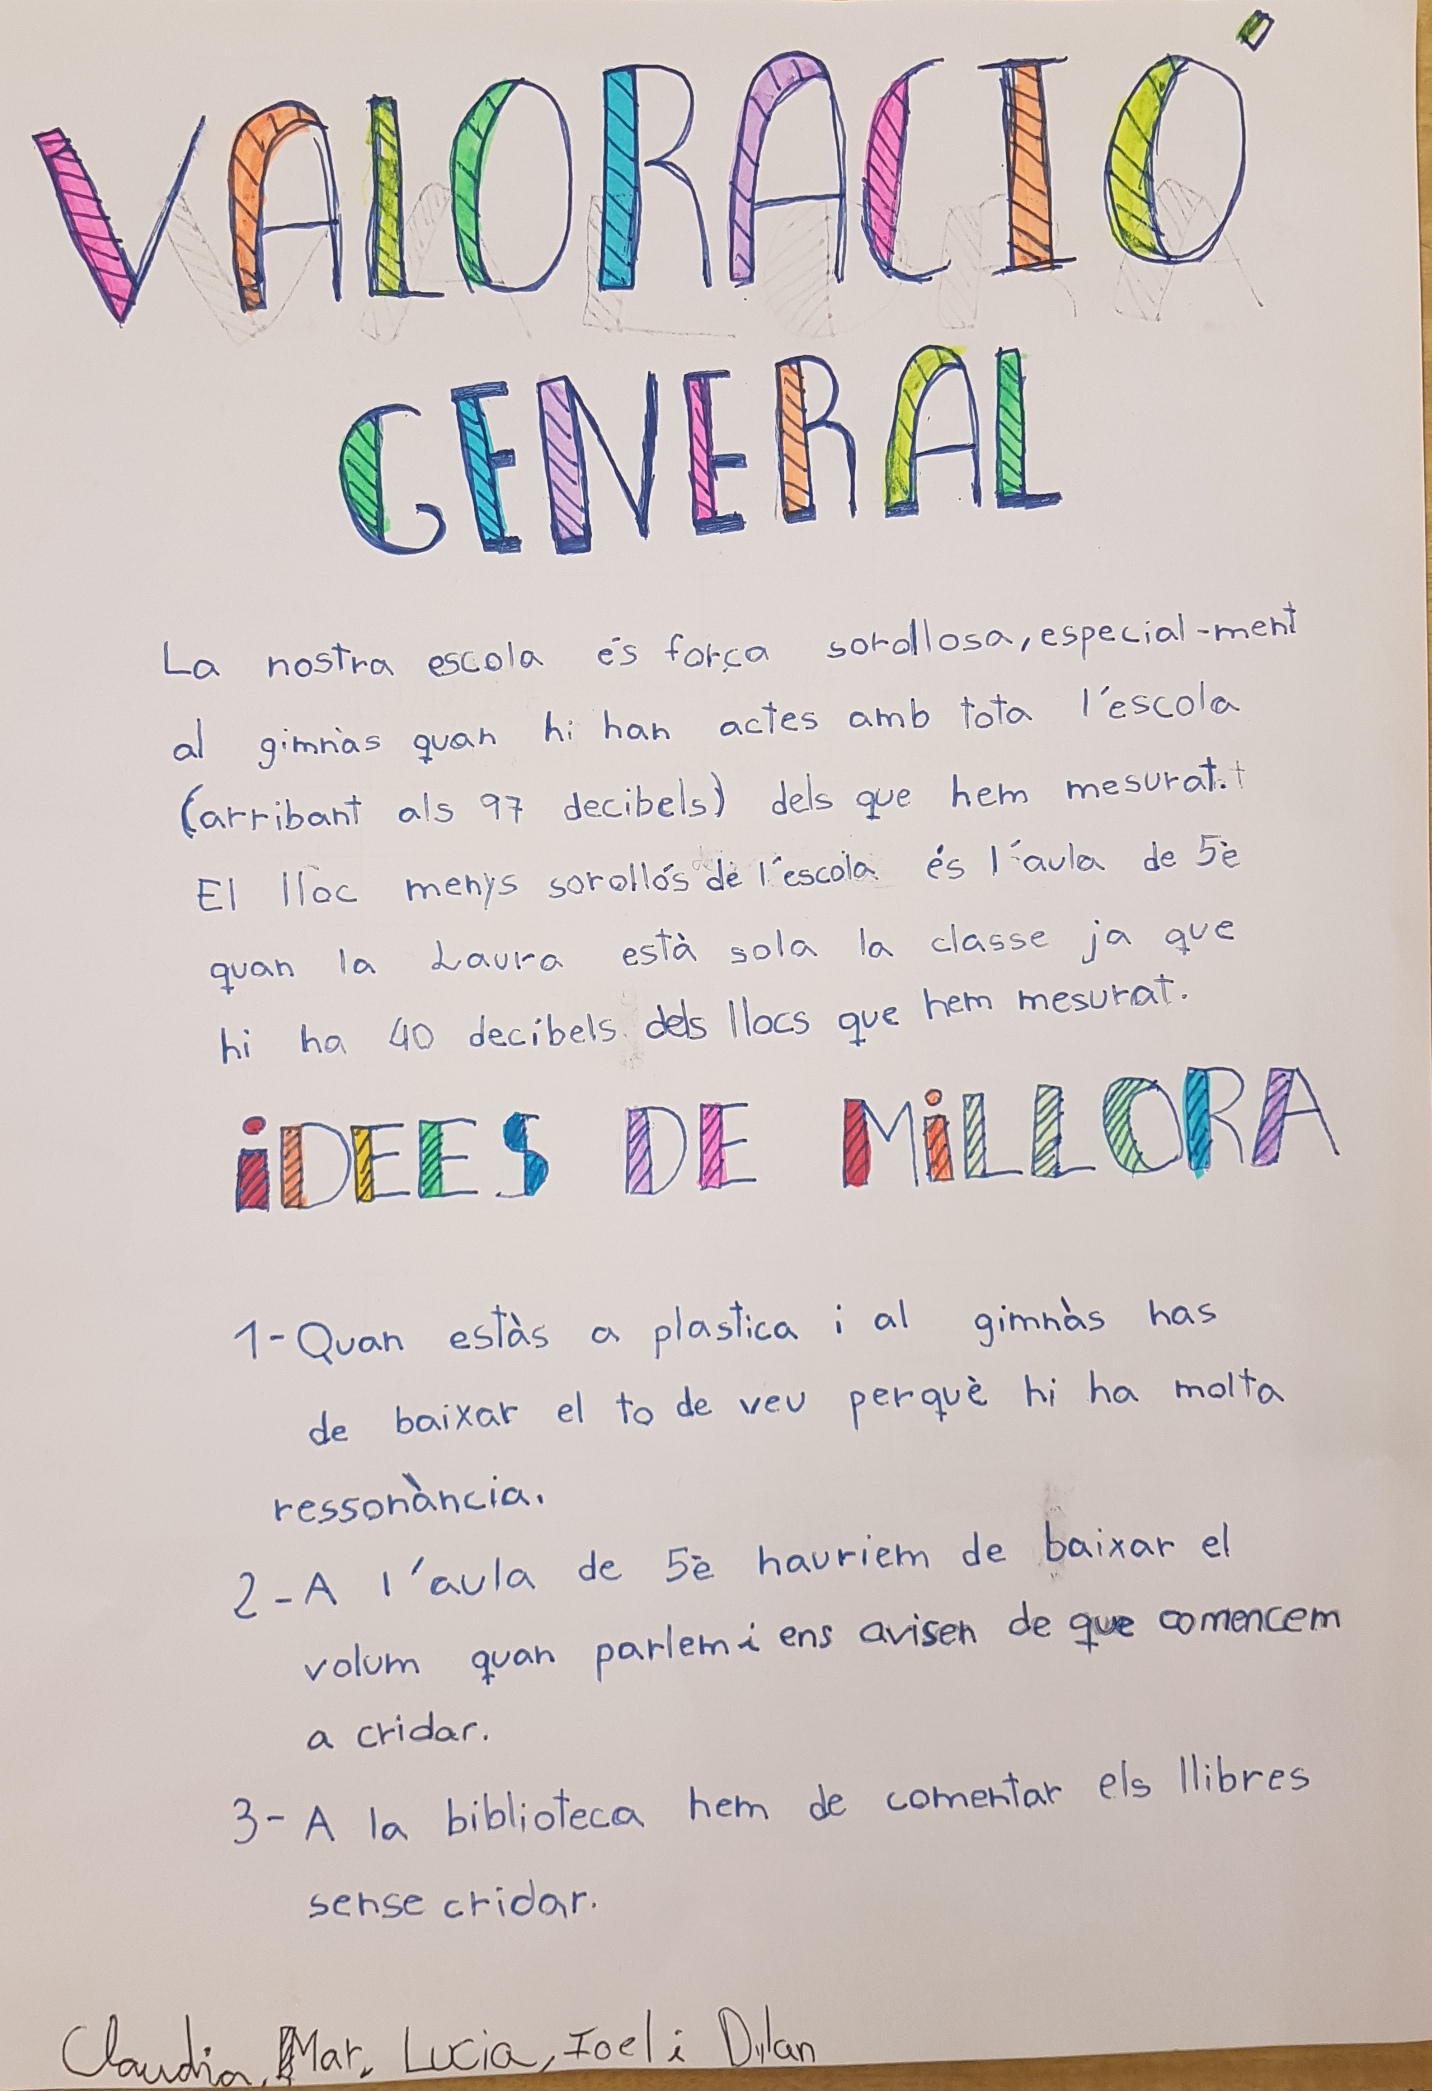 VALORACIÓ
GENERAL
La nostra escola és força sorollosa, especial-ment
al gimnàs quan hi han actes amb tota l'escola
(arribant als 97 decibels) dels que hem mesurat.
El lloc menys sorollós de l'escola és l'aula de 5è
quan la Laura està sola la classe ja que
hi ha 40 decibels dels llocs que hem mesurat.
iDEES DE MiLLORA
1-Quan estàs a plastica i al gimnàs has
de baixar el to de veu perquè hi ha molta
ressonància.
2-A l'aula de 5è hauriem de baixar el
volum quan parlem i ens avisen de que comencem
a cridar.
3-A la biblioteca hem de comentar els llibres
sense cridar.
Claudia, Mar, Lucia, Ioel i Dylan